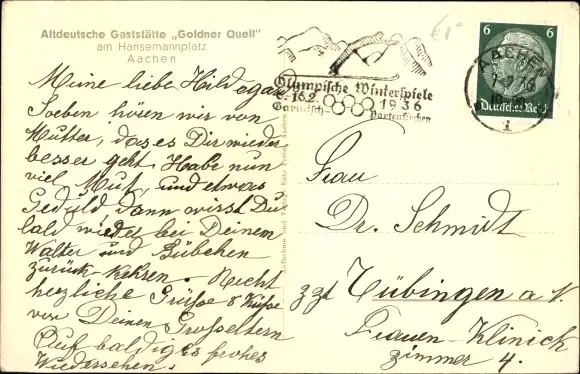 Altdeutsche Gaststätte „Goldner Quell"
am Hansemannplatz
Aachen
Meine liebe Hildegard
Soeben hören wir von
Mutter, das es Dir wieder
besser geht. Habe nun
viel Mut, und etwas
Geduld dann wirst Du
bald wieder bei Deinem
Walter und Bübchen
zurück-kehren. Recht
herzliche Grüße & Küße
von Deinen Großeltern
Auf baldiges frohes
Wiedersehen.
Olympische Winterspiele
6.-16.2. 1936
Garmisch-Partenkirchen
AACHEN
1
6 6
Deutsches Reich
Frau
Dr. Schmidt
zzt Tübingen a N.
Frauen-Klinick
Zimmer 4.